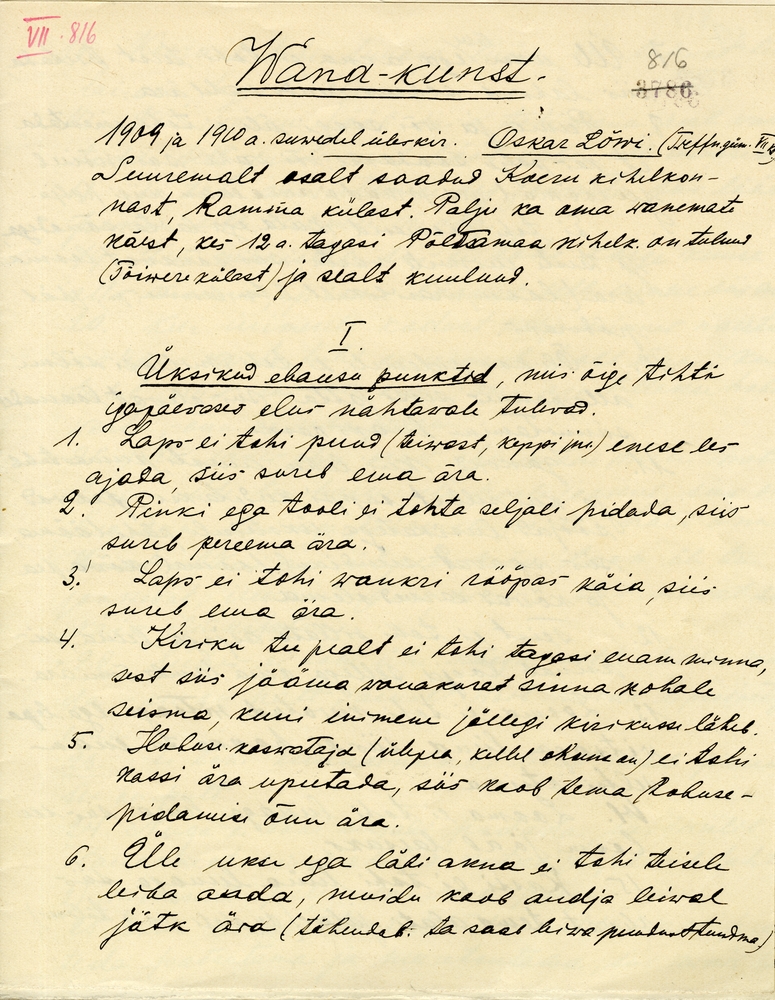 VII. 816
816
3786
Wana-kunst.
1909 ja 1910 a. suwedel üleskir. Oskar Lõwi. (Treffn. güm. VII kl)
Suuremalt osalt saadud Koeru kihelkon-
nast, Ramma külast. Palju ka oma wanemate
käest, kes 12 a. tagasi Põltsamaa kihelk. on tulnud
(Tõiwere külast) ja sealt kuulnud.
I
Üksikud ebausu punktid, mis õige tihti
igapäewases elus nähtawale tulewad.
1. Laps ei tohi puud (teiwast, keppi jne.) enese ees
ajada, siis sureb ema ära.
2. Pinki ega tooli ei tohta seljali pidada, siis
sureb pereema ära.
3. Laps ei tohi wankri rööpas käia, siis
sureb ema ära.
4. Kiriku tee pealt ei tohi tagasi enam minna,
sest siis jääma wanakuret sinna kohale
seisma, kuni inimene jällegi kirikusse läheb.
5. Hobuse kaswataja (ühpea, kellel on) ei tohi
kassi ära uputada, siis kaob tema hobuse-
pidamise õnn ära.
6. Ülle ukse ega läbi akna ei tohi teisele
leiba anda, muidu kaob andja leiwal
jätk ära (tähendab: ta saab leiwa puudust tundma)